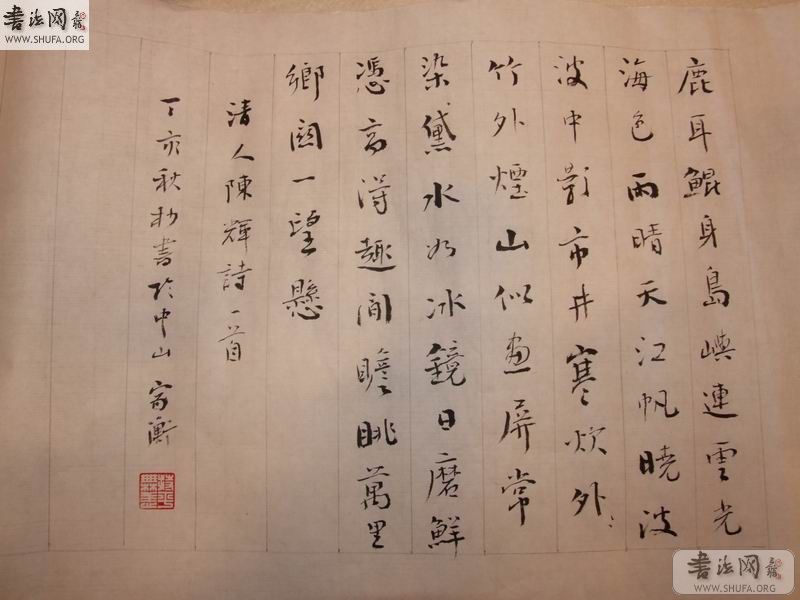 書法网
WWW.SHUFA.ORG
鹿耳鯤身島嶼連雲光
海色雨晴天江帆曉渡
波中影市井寒炊外
竹外煙山似畫屏常
染黛水如冰鏡日磨鮮
憑高得趣閒瞻眺萬里
鄉關一望懸
清人陳輝詩一首
丁亥秋杪書於中山 衡
書法网
WWW.SHUFA.ORG